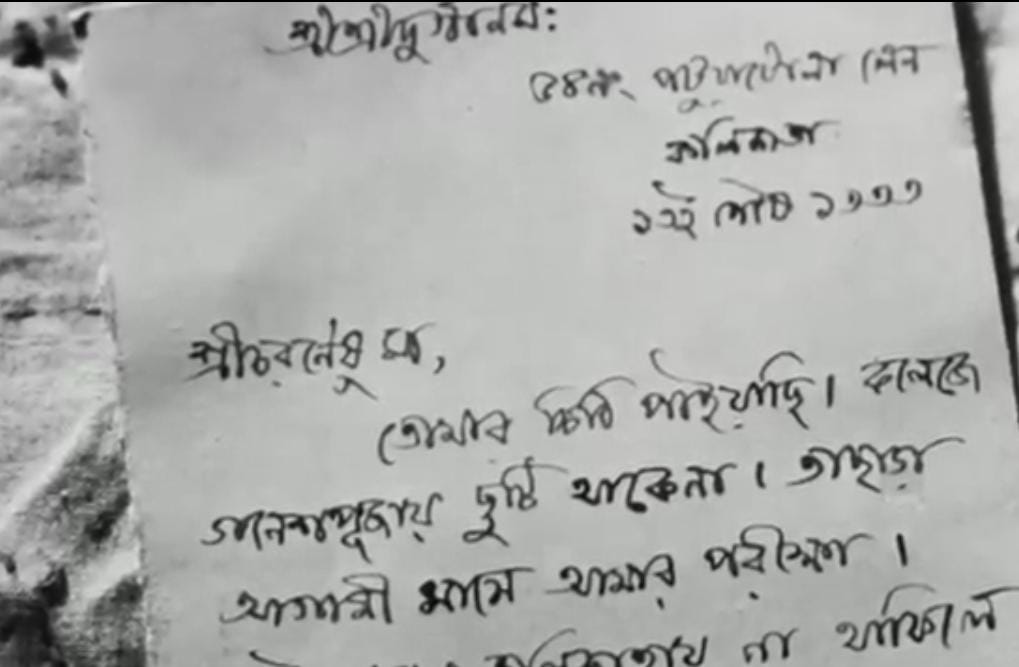 শ্রীশ্রীদুর্গাসহায়:
৩৪নং পটুয়াটোলা লেন
কলিকাতা
১২ই পৌষ ১৩৩৩
শ্রীচরণেষু মা,
তোমার চিঠি পাইয়াছি। কলেজে
গনেশপূজায় ছুটি থাকেনা। তাছাড়া
আগামী মাসে আমার পরীক্ষা।
কলিকাতায় না থাকিলে